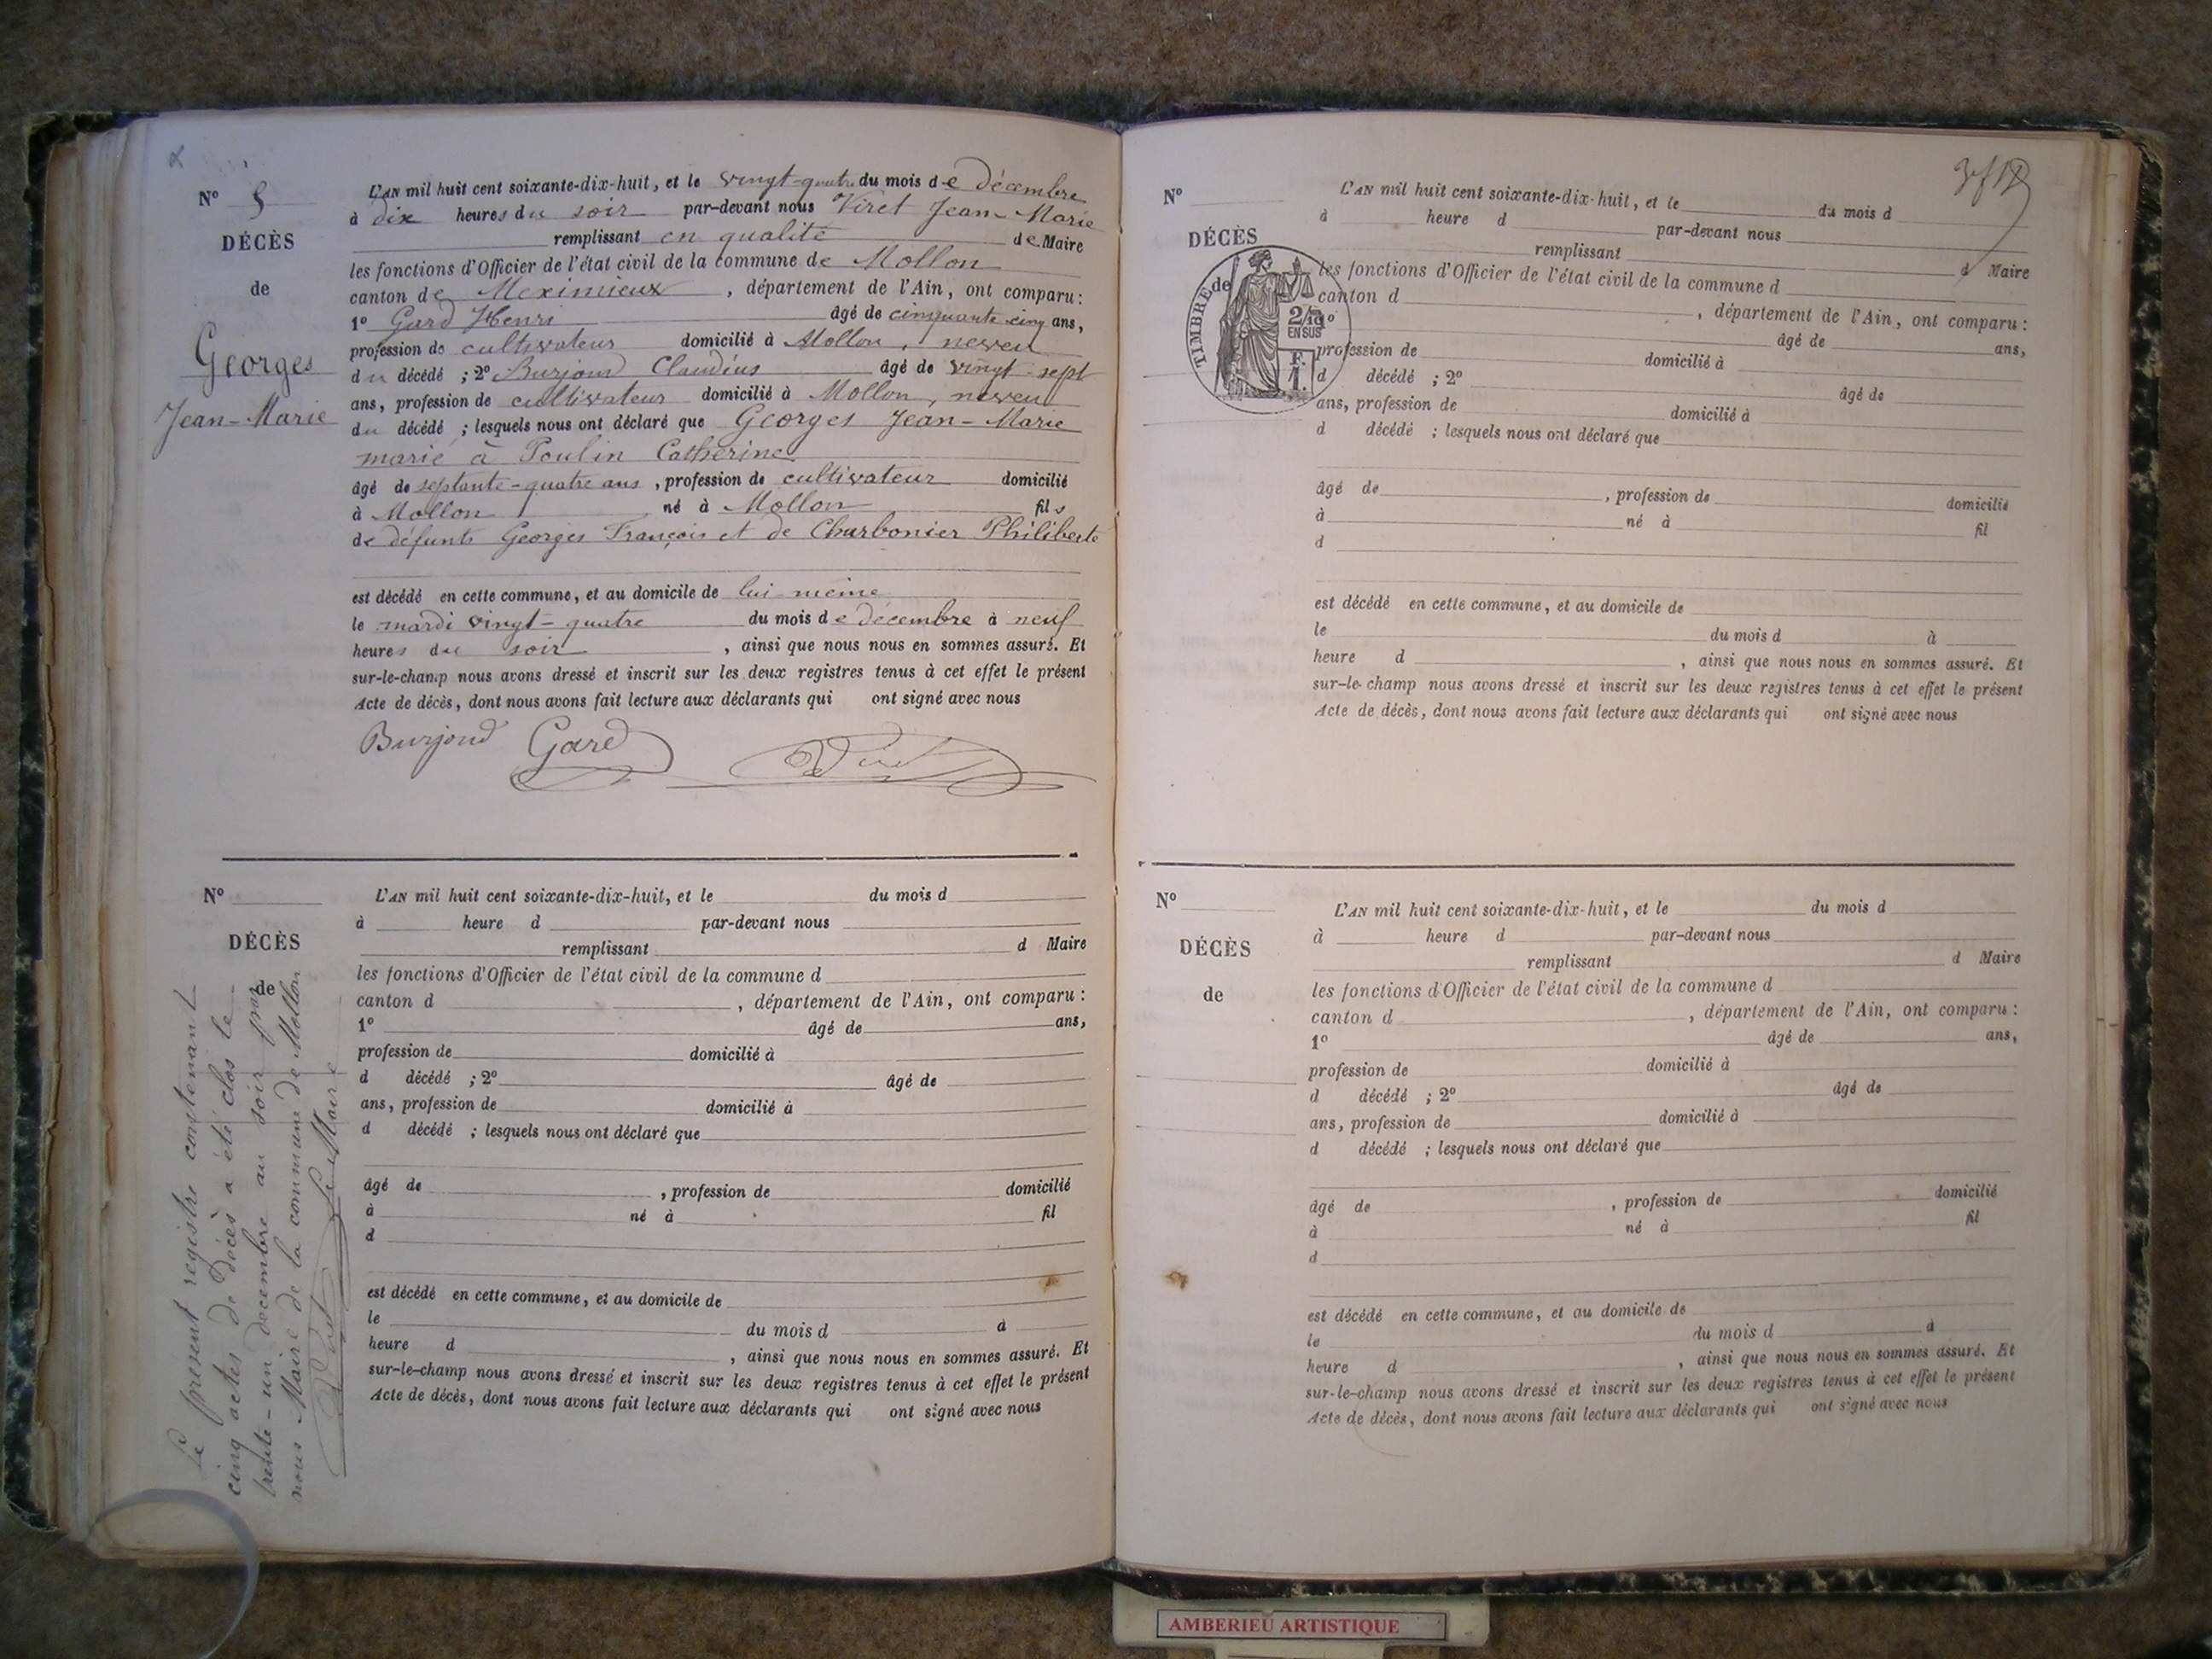 Nº 5
DÉCÈS
de
Georges
Jean-Marie
L'AN mil huit cent soixante-dix-huit, et le vingt-quatre du mois de décembre
à dix heures du soir par-devant nous Viret Jean-Marie
remplissant en qualité de Maire
les fonctions d'Officier de l'état civil de la commune de Mollon
canton de Meximieux, département de l'Ain, ont comparu :
1º Gard Henri âgé de cinquante-cinq ans,
profession de cultivateur domicilié à Mollon, neveu
du décédé ; 2º Burjoud Claudius âgé de vingt-sept
ans, profession de cultivateur domicilié à Mollon, neveu
du décédé ; lesquels nous ont déclaré que Georges Jean-Marie
marié à Poulin Catherine
âgé de septante-quatre ans, profession de cultivateur domicilié
à Mollon né à Mollon fils
de défunts Georges François et de Charbonier Philiberte
est décédé en cette commune, et au domicile de lui même
le mardi vingt-quatre du mois de décembre à neuf
heures du soir, ainsi que nous nous en sommes assuré. Et
sur-le-champ nous avons dressé et inscrit sur les deux registres tenus à cet effet le présent
Acte de décès, dont nous avons fait lecture aux déclarants qui ont signé avec nous
Burjoud Gard Viret
Nº
DÉCÈS
de
L'AN mil huit cent soixante-dix-huit, et le du mois d
à heure d par-devant nous
remplissant d Maire
les fonctions d'Officier de l'état civil de la commune d
canton d , département de l'Ain, ont comparu :
1º âgé de ans,
profession de domicilié à
d décédé ; 2º âgé de
ans, profession de domicilié à
d décédé ; lesquels nous ont déclaré que
âgé de , profession de domicilié
à né à fil
d
est décédé en cette commune, et au domicile de
le du mois d à
heure d , ainsi que nous nous en sommes assuré. Et
sur-le-champ nous avons dressé et inscrit sur les deux registres tenus à cet effet le présent
Acte de décès, dont nous avons fait lecture aux déclarants qui ont signé avec nous
Le présent registre contenant
cinq actes de décès a été clos le
trente-un décembre au soir par
nous Maire de la commune de Mollon
Le Maire
Viret
Nº
DÉCÈS
de
TIMBRE
2/10
EN SUS
F.
1.
L'AN mil huit cent soixante-dix-huit, et le du mois d
à heure d par-devant nous
remplissant d Maire
les fonctions d'Officier de l'état civil de la commune d
canton d , département de l'Ain, ont comparu :
1º âgé de ans,
profession de domicilié à
d décédé ; 2º âgé de
ans, profession de domicilié à
d décédé ; lesquels nous ont déclaré que
âgé de , profession de domicilié
à né à fil
d
est décédé en cette commune, et au domicile de
le du mois d à
heure d , ainsi que nous nous en sommes assuré. Et
sur-le-champ nous avons dressé et inscrit sur les deux registres tenus à cet effet le présent
Acte de décès, dont nous avons fait lecture aux déclarants qui ont signé avec nous
Nº
DÉCÈS
de
L'AN mil huit cent soixante-dix-huit, et le du mois d
à heure d par-devant nous
remplissant d Maire
les fonctions d'Officier de l'état civil de la commune d
canton d , département de l'Ain, ont comparu :
1º âgé de ans,
profession de domicilié à
d décédé ; 2º âgé de
ans, profession de domicilié à
d décédé ; lesquels nous ont déclaré que
âgé de , profession de domicilié
à né à fil
d
est décédé en cette commune, et au domicile de
le du mois d à
heure d , ainsi que nous nous en sommes assuré. Et
sur-le-champ nous avons dressé et inscrit sur les deux registres tenus à cet effet le présent
Acte de décès, dont nous avons fait lecture aux déclarants qui ont signé avec nous
AMBERIEU ARTISTIQUE